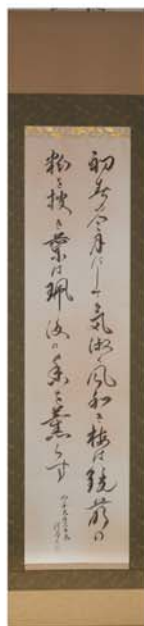 初春の令月にして気淑く風和ぎ梅は鏡前の
粉を披き蘭は珮後の香を薫らす